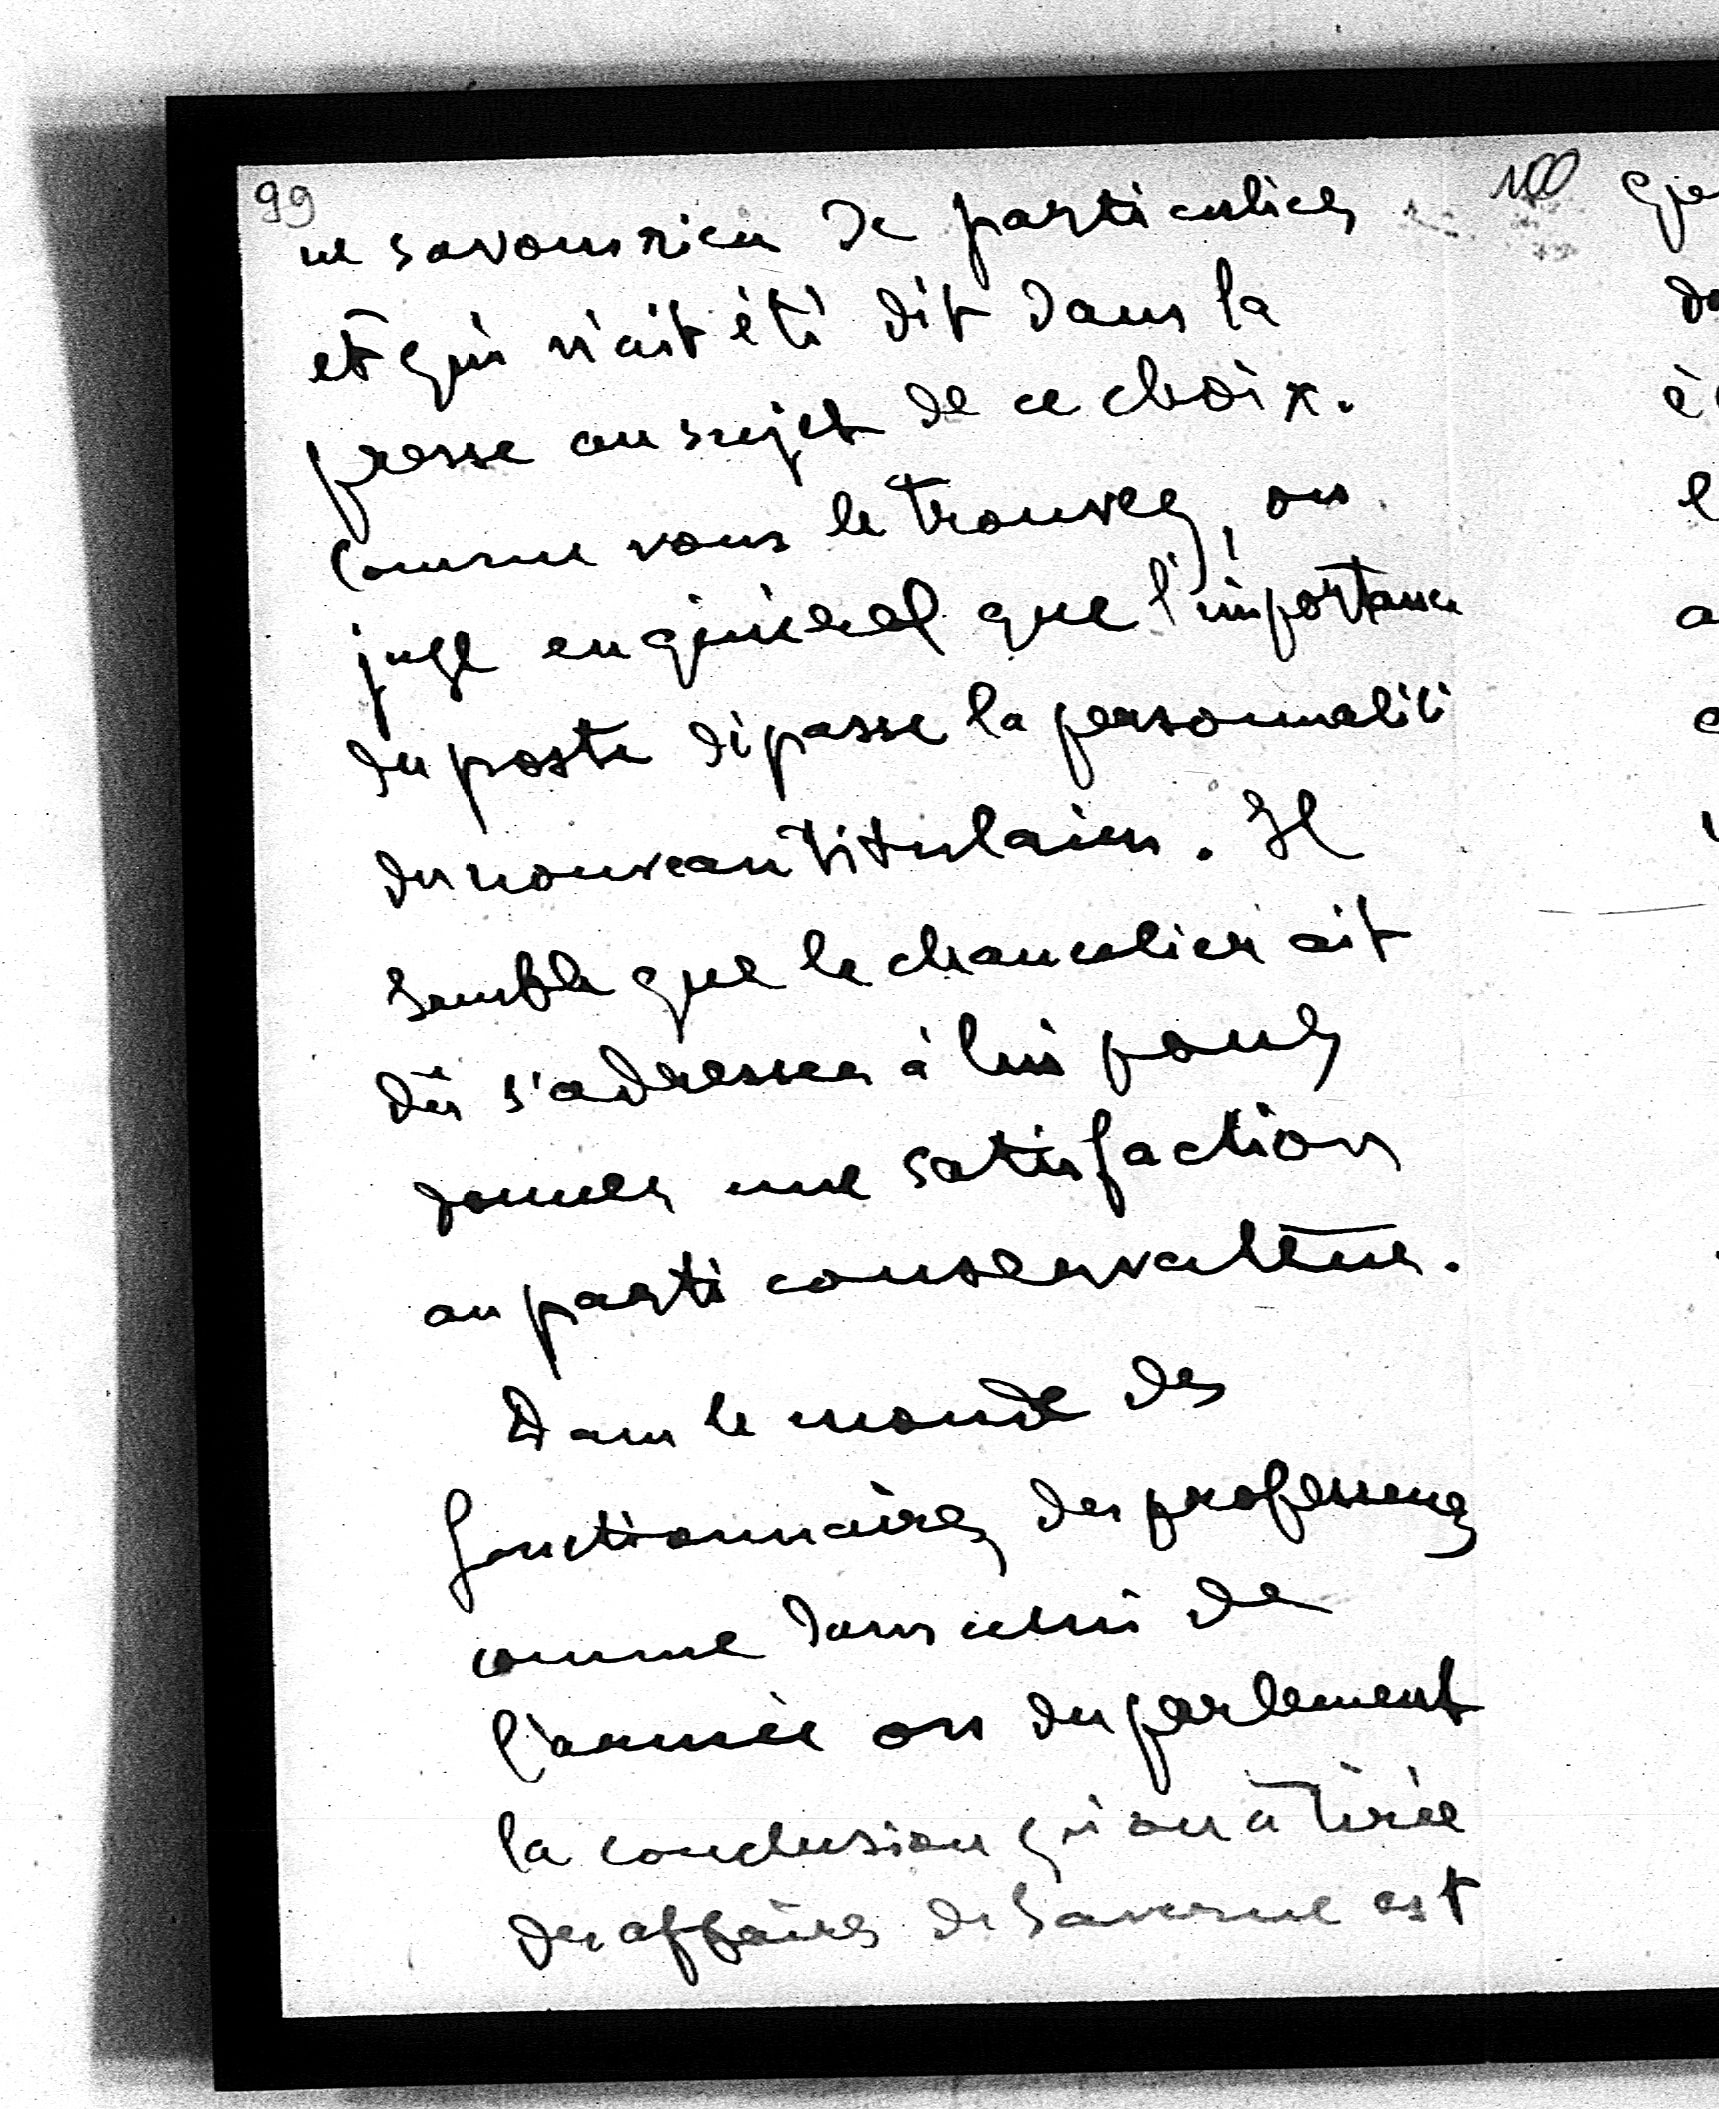 99
ne savons rien de particulier
et qui n'ait été dit dans la
presse au sujet de ce choix.
Comme vous le trouvez, on
juge en général que l'importance
du poste dépasse la personnalité
du nouveau titulaire. Il
semble que le chancelier ait
dû s'adresser à lui pour
donner une satisfaction
au parti conservateur.
Dans le monde des
fonctionnaires, des professeurs
comme dans celui de
l'armée ou du parlement
la conclusion qu'on a tirée
des affaires de Saverne est
100